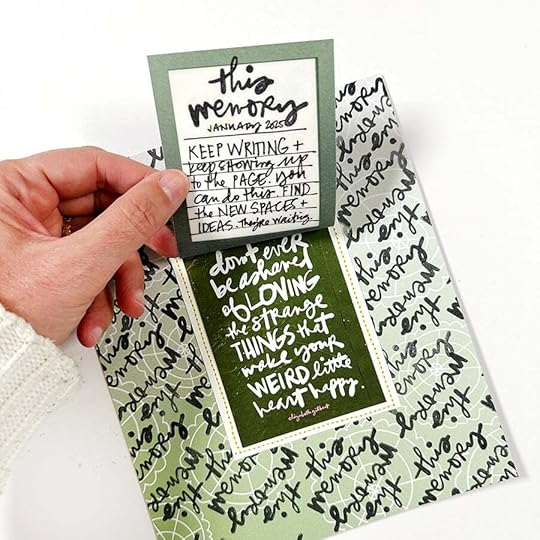 this
memory
JANUARY 2025
KEEP WRITING +
keep showing up
to the PAGE. you
can do this. FIND
the NEW SPACES +
IDEAS. They're waiting.
don't ever
be ashamed
of LOVING
the strange
THINGS that
make your
WEIRD little
heart happy.
elizabeth gilbert
this
memory
this
memory
this
memory
this
memory
this
memory
this
memory